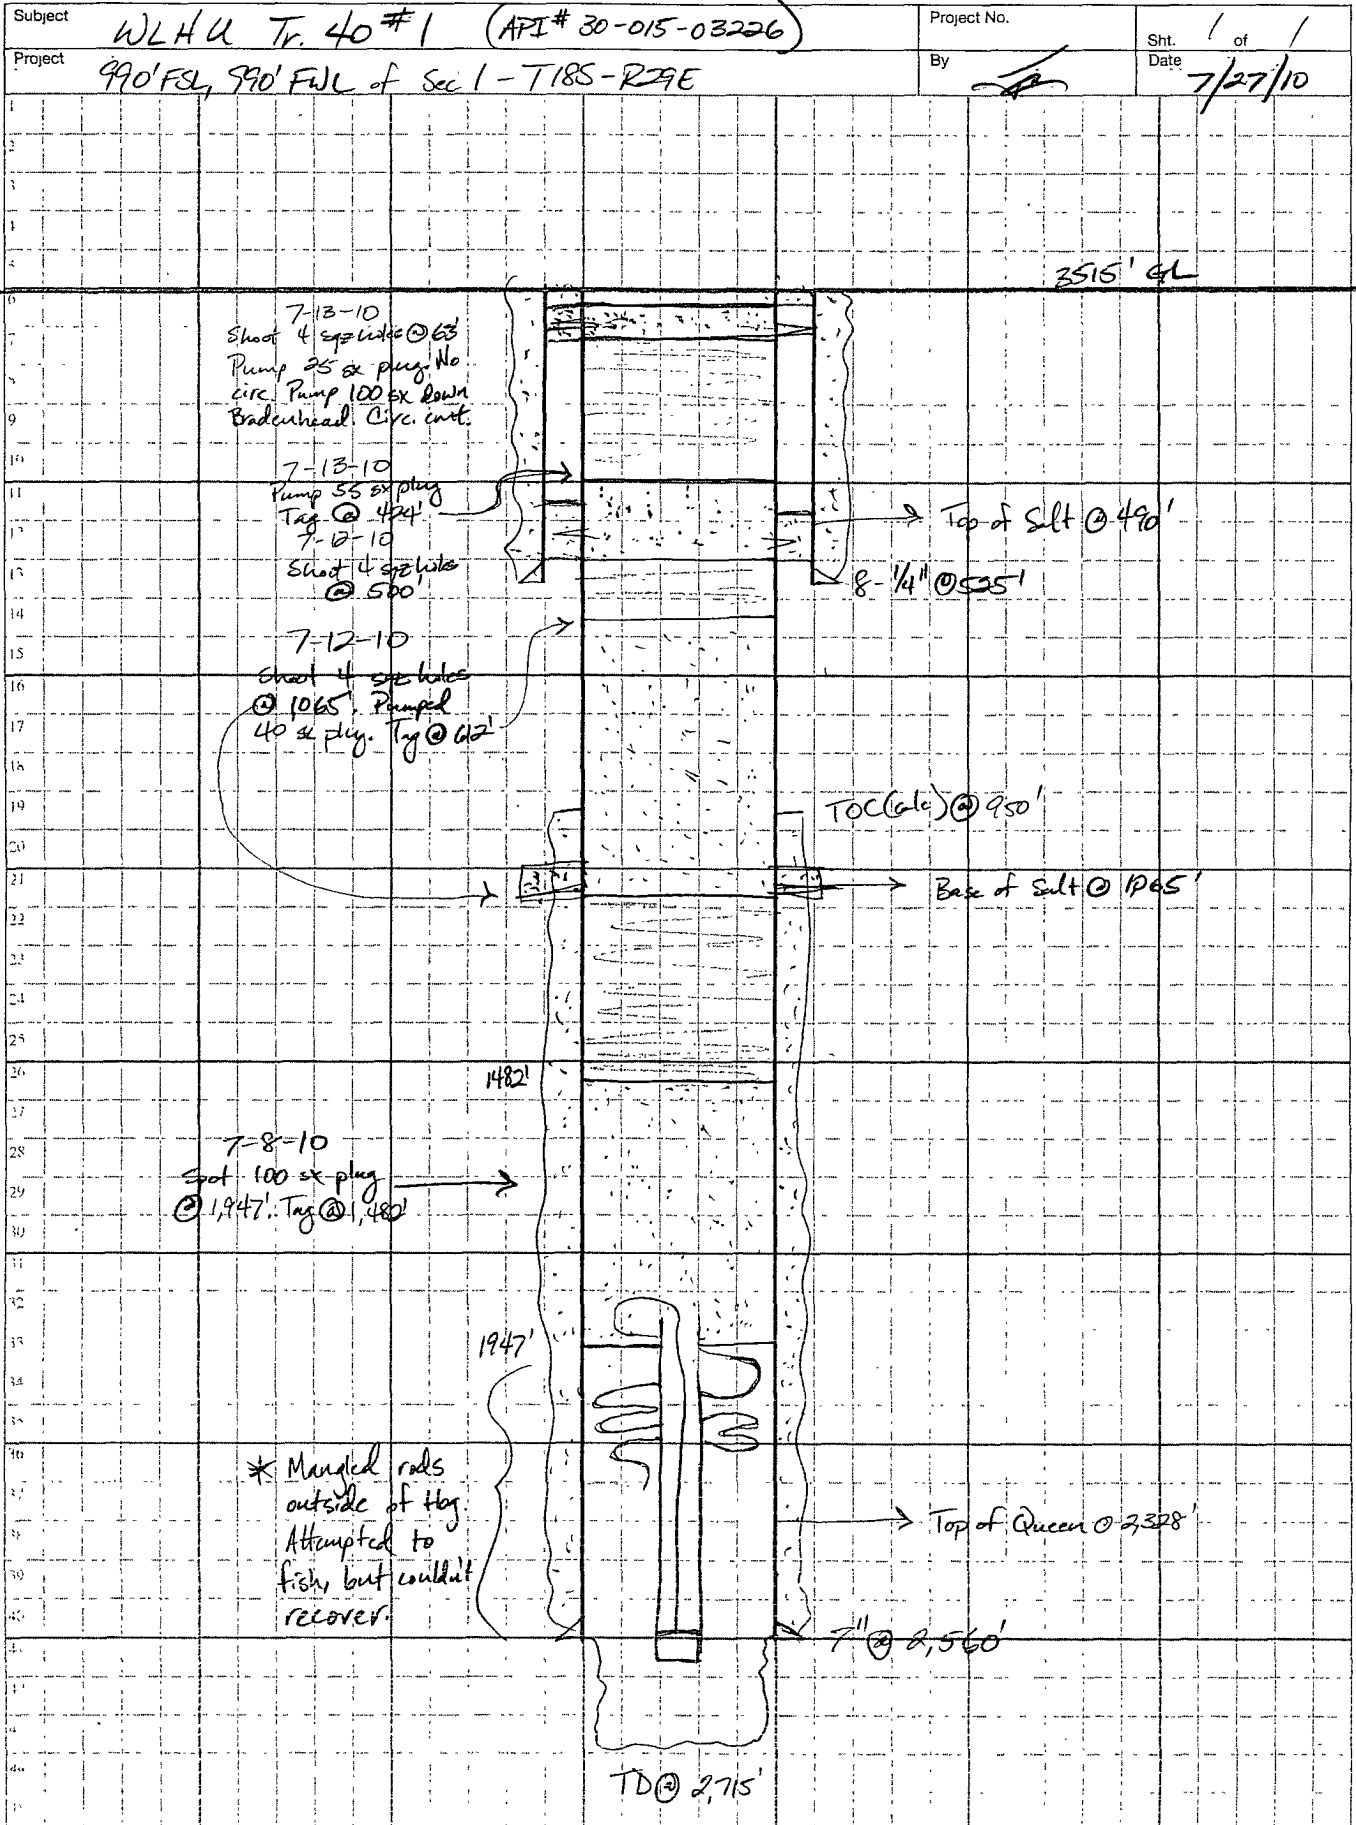 Subject WLHU Tr. 40 #1 (API# 30-015-03226)
Project No.
Sht. 1 of 1
Project 990' FSL, 990' FWL of Sec 1 - T18S - R29E
By
Date 7/27/10
3515' GL
7-13-10
Shoot 4 sqz holes @ 63'
Pump 25 sx plug. No
circ. Pump 100 sx down
Bradenhead. Circ. cmt.
7-13-10
Pump 55 sx plug
Tag @ 424'
7-12-10
Shoot 4 sqz holes
@ 500'
Top of Salt @ 490'
8-1/4" @ 525'
7-12-10
Shoot 4 sqz holes
@ 1065'. Pumped
40 sx plug. Tag @ 612'
TOC (calc) @ 950'
Base of Salt @ 1065'
1482'
7-8-10
Spot 100 sx plug
@ 1,947'. Tag @ 1,482'
1947'
* Mangled rods
outside of tbg.
Attempted to
fish, but couldn't
recover.
Top of Queen @ 2,328'
7" @ 2,560'
TD @ 2,715'